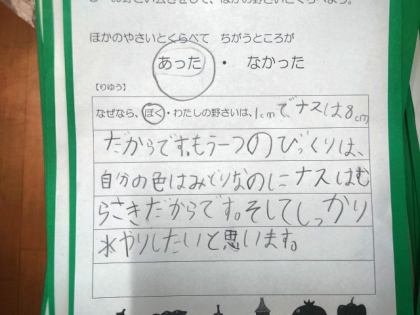 ほかのやさいとくらべて ちがうところが
あった ・ なかった
【りゆう】
なぜなら、ぼく・わたしの野さいは、1cmでナスは8cm
だからです。もう一つのびっくりは、
自分の色はみどりなのにナスはむ
らさきだからです。そしてしっかり
水やりしたいと思います。